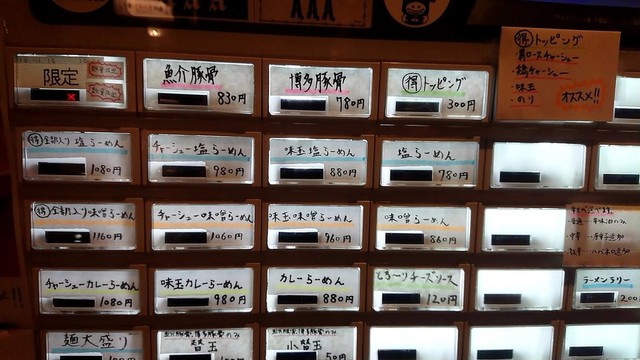 限定
魚介豚骨
830円
博多豚骨
780円
得トッピング
300円
得トッピング
・肩ロースチャーシュー
・味玉
・のり
オススメ!!
得全部入り塩らーめん
1080円
チャーシュー塩らーめん
980円
味玉塩らーめん
880円
塩らーめん
780円
得全部入り味噌らーめん
1160円
チャーシュー味噌らーめん
1060円
味玉味噌らーめん
960円
味噌らーめん
860円
チャーシューカレーらーめん
1080円
味玉カレーらーめん
980円
カレーらーめん
880円
とろ〜りチーズソース
120円
ラーメンラリー
200
麺大盛り
100円
替玉
小替玉
50円